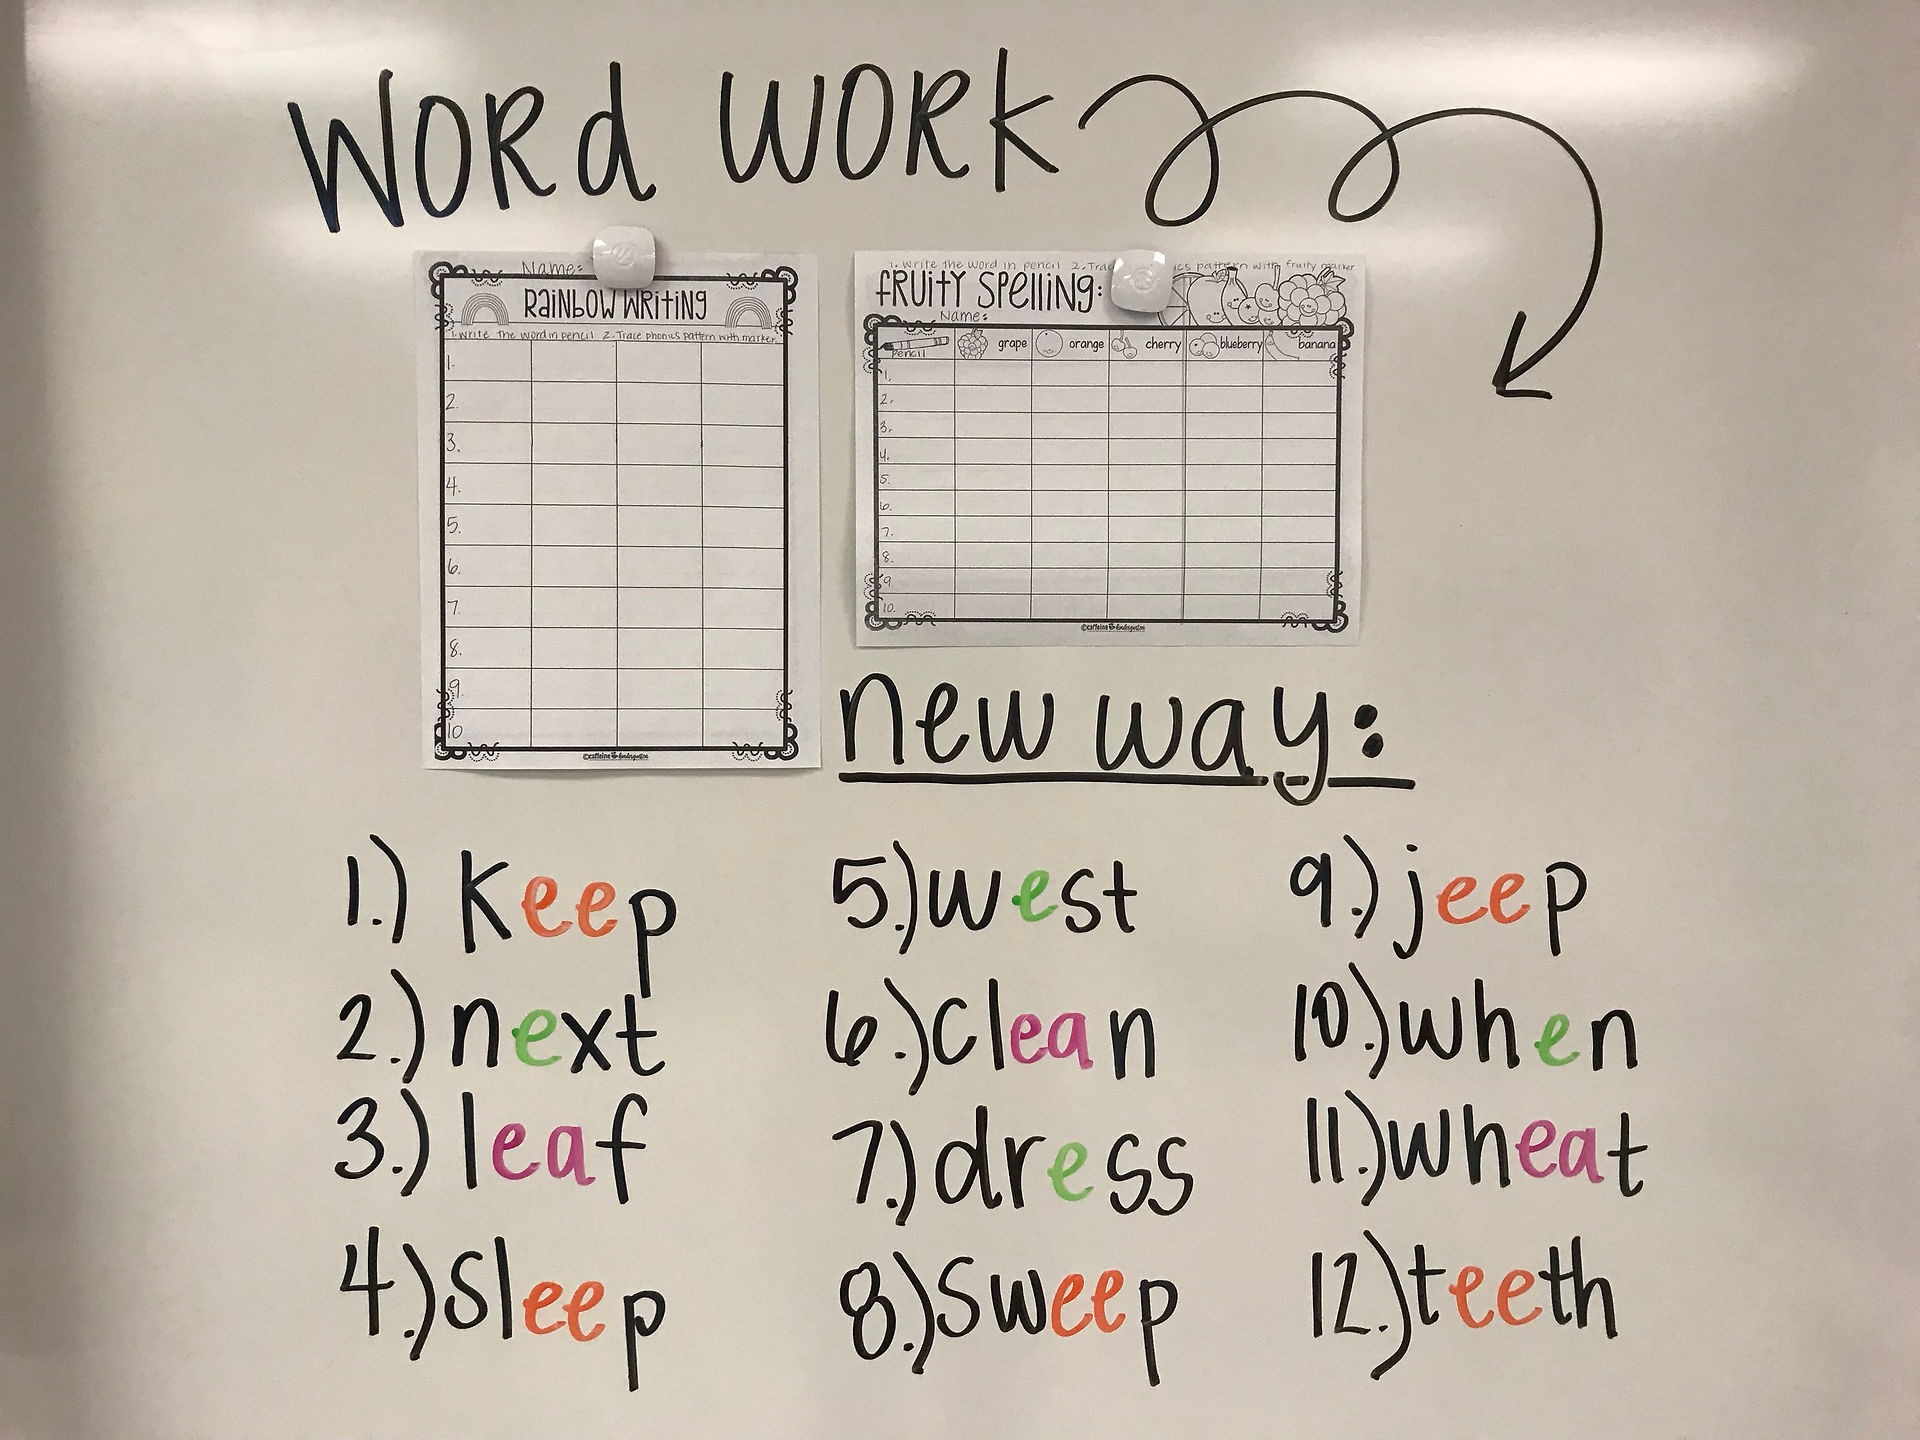 WORd WORK
Name:
RAINBOW WRITING
1. Write the word in pencil 2. Trace phonics pattern with marker
1.
2.
3.
4.
5.
6.
7.
8.
9.
10
©caffeine kindergarten
1. Write the word in pencil 2. Trac ics pattern with fruity marker
fRUITY SPelliNg:
Name:
pencil grape orange cherry blueberry banana
1.
2.
3.
4.
5.
6.
7.
8.
9.
10.
©caffeine kindergarten
new way:
1.) keep
2.) next
3.) leaf
4.) sleep
5.) west
6.) clean
7.) dress
8.) sweep
9.) jeep
10.) when
11.) wheat
12.) teeth